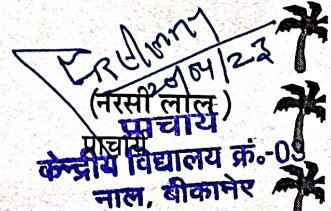 (नरसी लाल)
प्राचार्य
प्राचार्य
केन्द्रीय विद्यालय क्रं.-03
नाल, बीकानेर